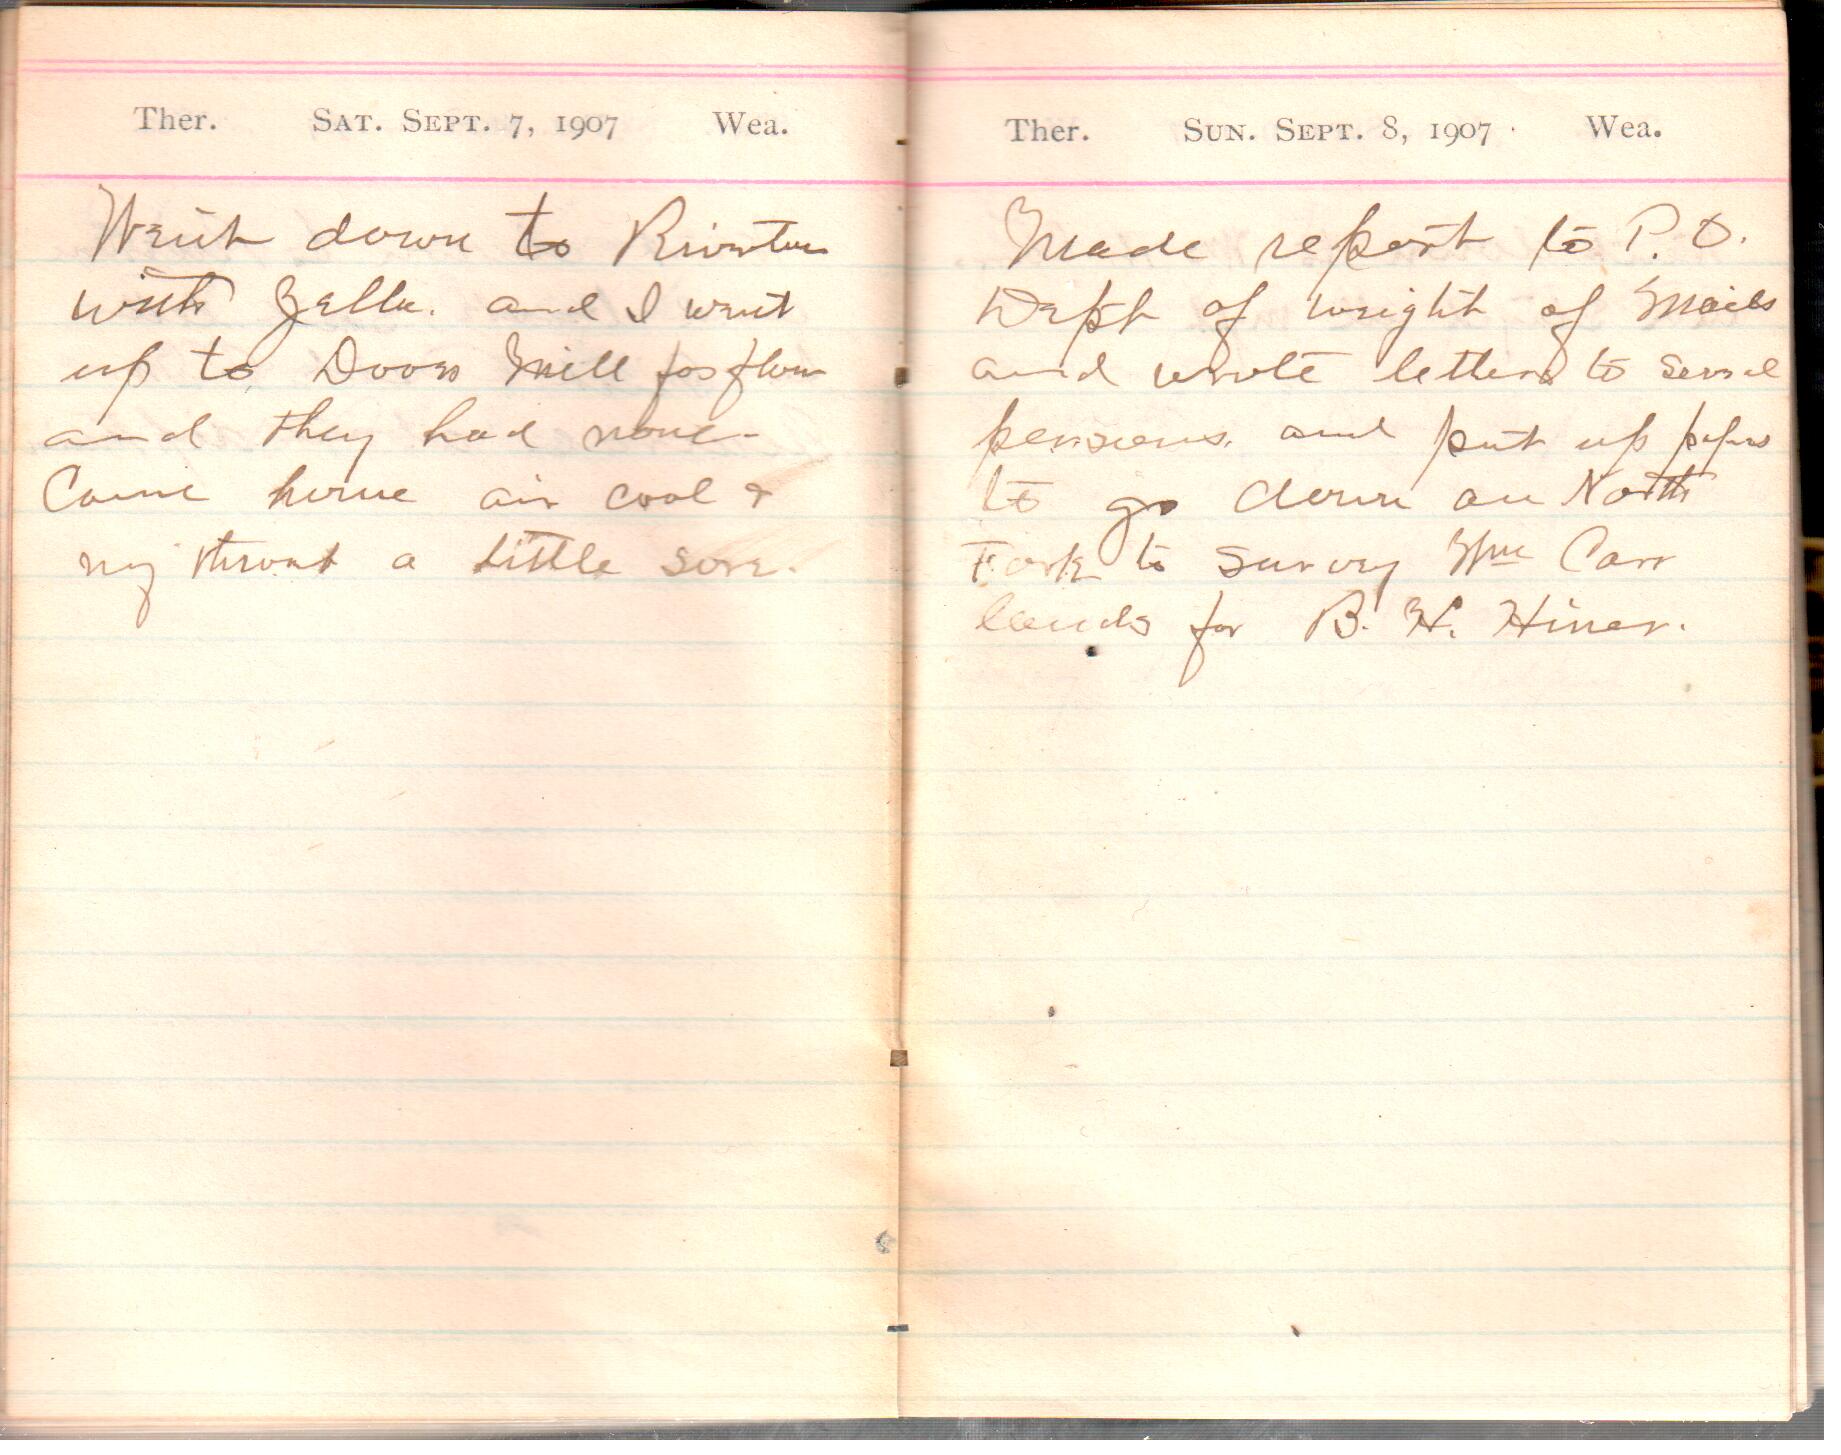 Ther. SAT. SEPT. 7, 1907 Wea.
Went down to Riverton
with Zella. and I went
up to Doves Mill for flour
and they had none-
Came home air cool &
my throat a little sore.
Ther. SUN. SEPT. 8, 1907 Wea.
Made report to P. O.
Dept of weight of Mails
and wrote letters to
persons. and put up papers
to go down on North
Fork to Survey Wm Carr
lands for B. H. Hiner.